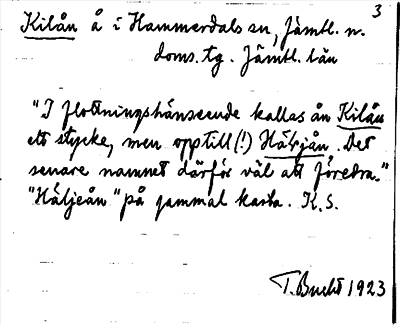 3
Kilån å i Hammerdals sn, Jämtl. n.
doms. tg. Jämtl. län
"I flottningshänseende kallas ån Kilån
ett stycke, men opptill (!) Hälsjån. Det
senare namnet därför väl att föredra."
"Häljeån" på gammal karta. K. S.
T. Bucht 1923